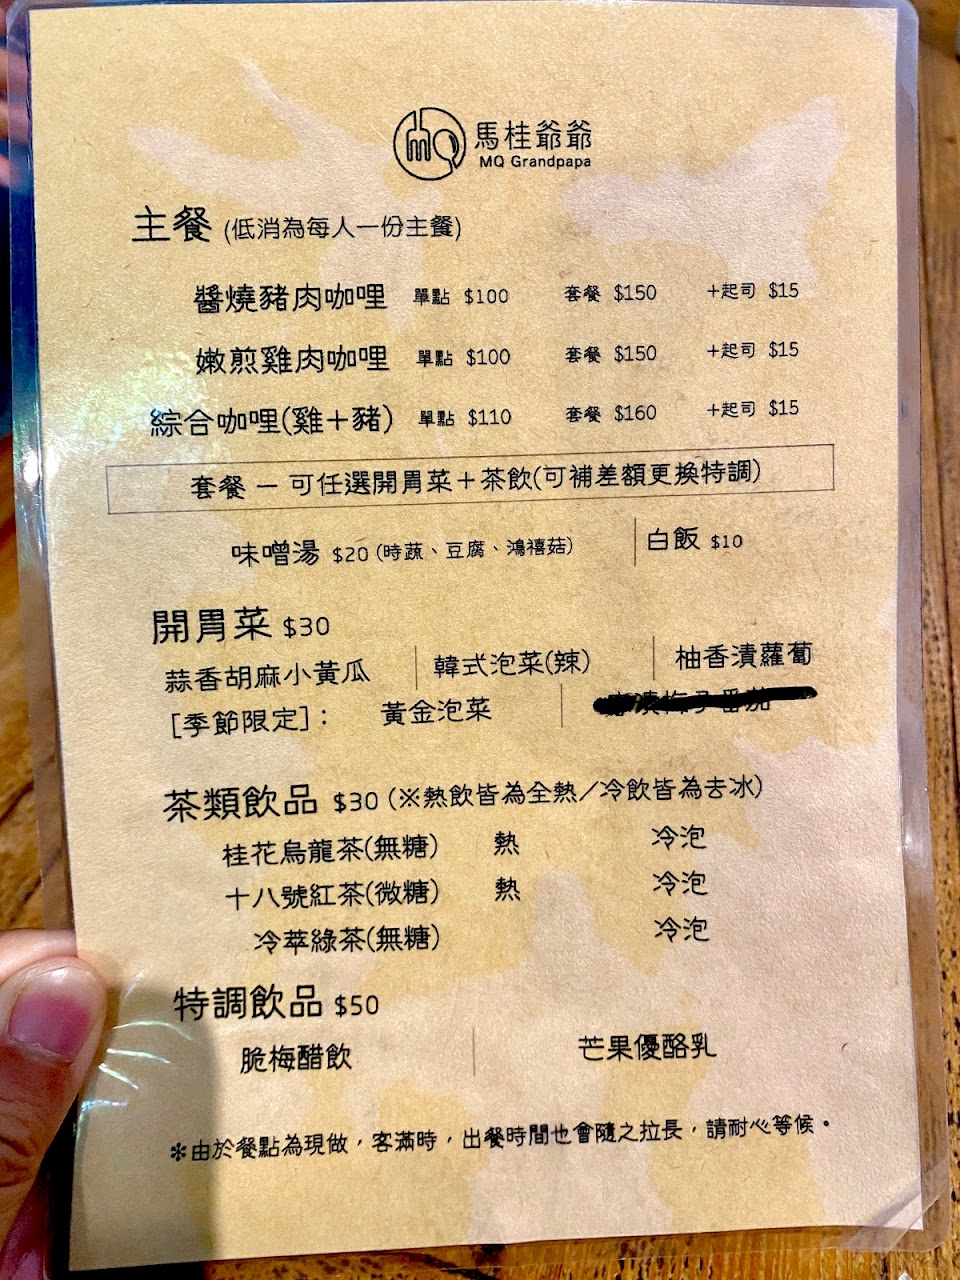 馬桂爺爺
MQ Grandpapa
主餐 (低消為每人一份主餐)
醬燒豬肉咖哩 單點 $100 套餐 $150 +起司 $15
嫩煎雞肉咖哩 單點 $100 套餐 $150 +起司 $15
綜合咖哩(雞+豬) 單點 $110 套餐 $160 +起司 $15
套餐 — 可任選開胃菜+茶飲(可補差額更換特調)
味噌湯 $20 (時蔬、豆腐、鴻禧菇) 白飯 $10
開胃菜 $30
蒜香胡麻小黃瓜 韓式泡菜(辣) 柚香漬蘿蔔
[季節限定]: 黃金泡菜 漬梅子番茄
茶類飲品 $30 (※熱飲皆為全熱/冷飲皆為去冰)
桂花烏龍茶(無糖) 熱 冷泡
十八號紅茶(微糖) 熱 冷泡
冷萃綠茶(無糖) 冷泡
特調飲品 $50
脆梅醋飲 芒果優酪乳
✻由於餐點為現做，客滿時，出餐時間也會隨之拉長，請耐心等候。